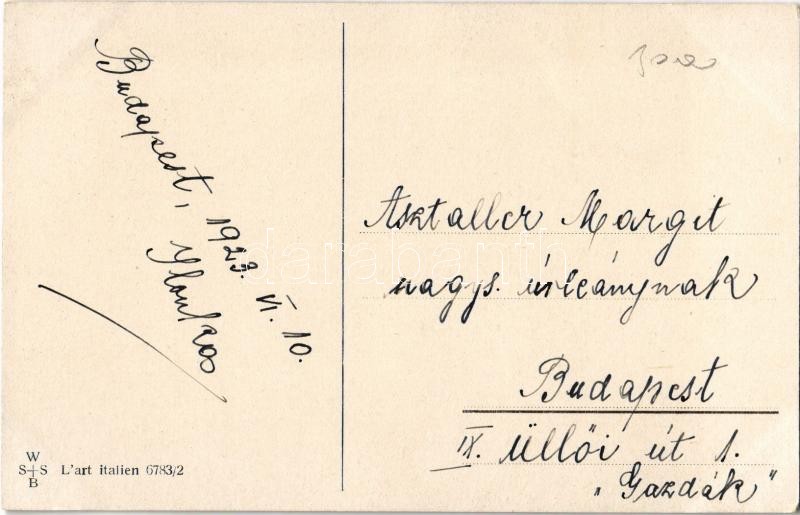 Budapest, 1923. VI. 10.
Ylonkos
Asztaller Margit
nagys. úrleánynak
Budapest
IX. Üllői út 1.
"Gazdák"
W
S S
B
L'art italien 6783/2
darabanth